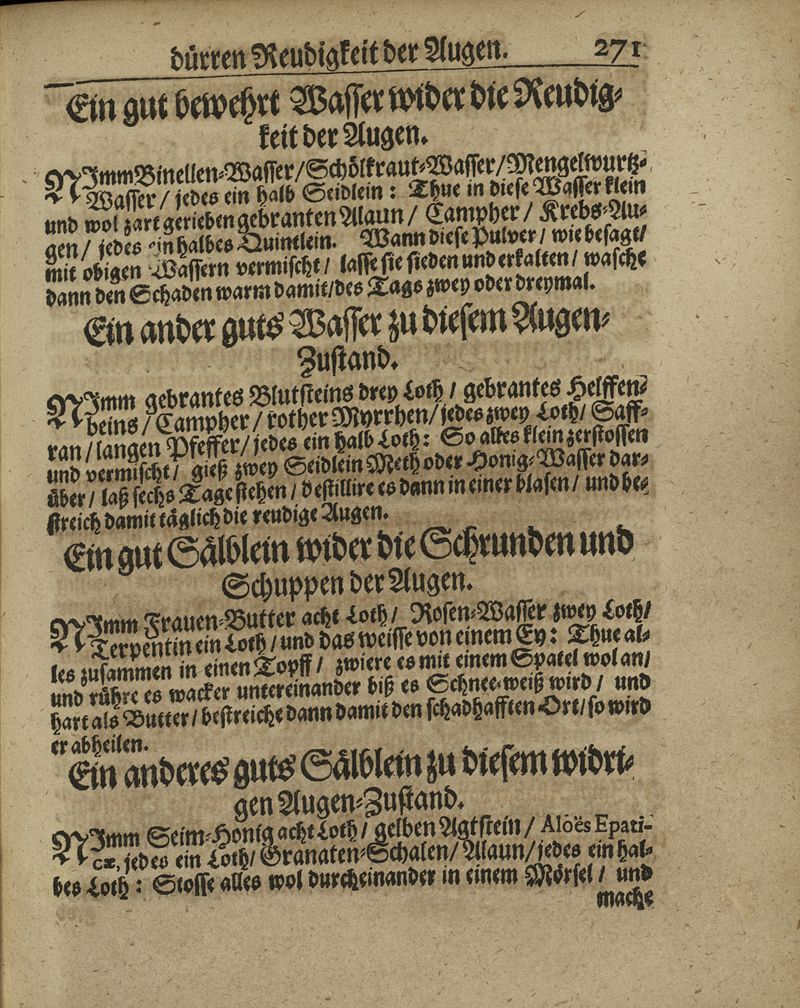 dürren Reudigkeit der Augen. 271
Ein gut bewehrt Wasser wider die Reudig-
keit der Augen.
NImm Binellen-Wasser/Schölkraut-Wasser/Mengelwurtz-
Wasser / jedes ein halb Seidlein: Thue in diese Wasser klein
und wol zart gerieben gebranten Alaun / Campher / Krebs-Au-
gen / jedes ein halbes Quintlein. Wann diese Pulver / wie besagt/
mit obigen Wassern vermischt / lasse sie sieden und erkalten / wasche
dann den Schaden warm damit/des Tags zwey oder dreymal.
Ein ander guts Wasser zu diesem Augen-
Zustand.
NImm gebrantes Blutsteins drey Loth / gebrantes Helffen-
beins / Campher / rother Myrrhen/jedes zwey Loth/ Saff-
ran / langen Pfeffer/ jedes ein halb Loth: So alles klein zerstossen
und vermischt / gieß zwey Seidlein Meth oder Honig-Wasser dar-
über / laß sechs Tage stehen / destillire es dann in einer blasen / und be-
streich damit täglich die reudige Augen.
Ein gut Sälblein wider die Schrunden und
Schuppen der Augen.
NImm Frauen-Butter acht Loth / Rosen-Wasser zwey Loth/
Terpentin ein Loth / und das weisse von einem Ey: Thue al-
les zusammen in einen Topff / zwiere es mit einem Spatel wol an/
und rühre es wacker untereinander biß es Schnee-weiß wird / und
hart als Butter / bestreiche dann damit den schadhafften Ort/ so wird
er abheilen.
Ein anderes guts Sälblein zu diesem widri-
gen Augen-Zustand.
NImm Seim-Honig acht Loth / gelben Agtstein / Aloës Epati-
cæ, jedes ein Loth/ Granaten-Schalen/ Alaun/jedes ein hal-
bes Loth: Stosse alles wol durcheinander in einem Mörsel / und
mache